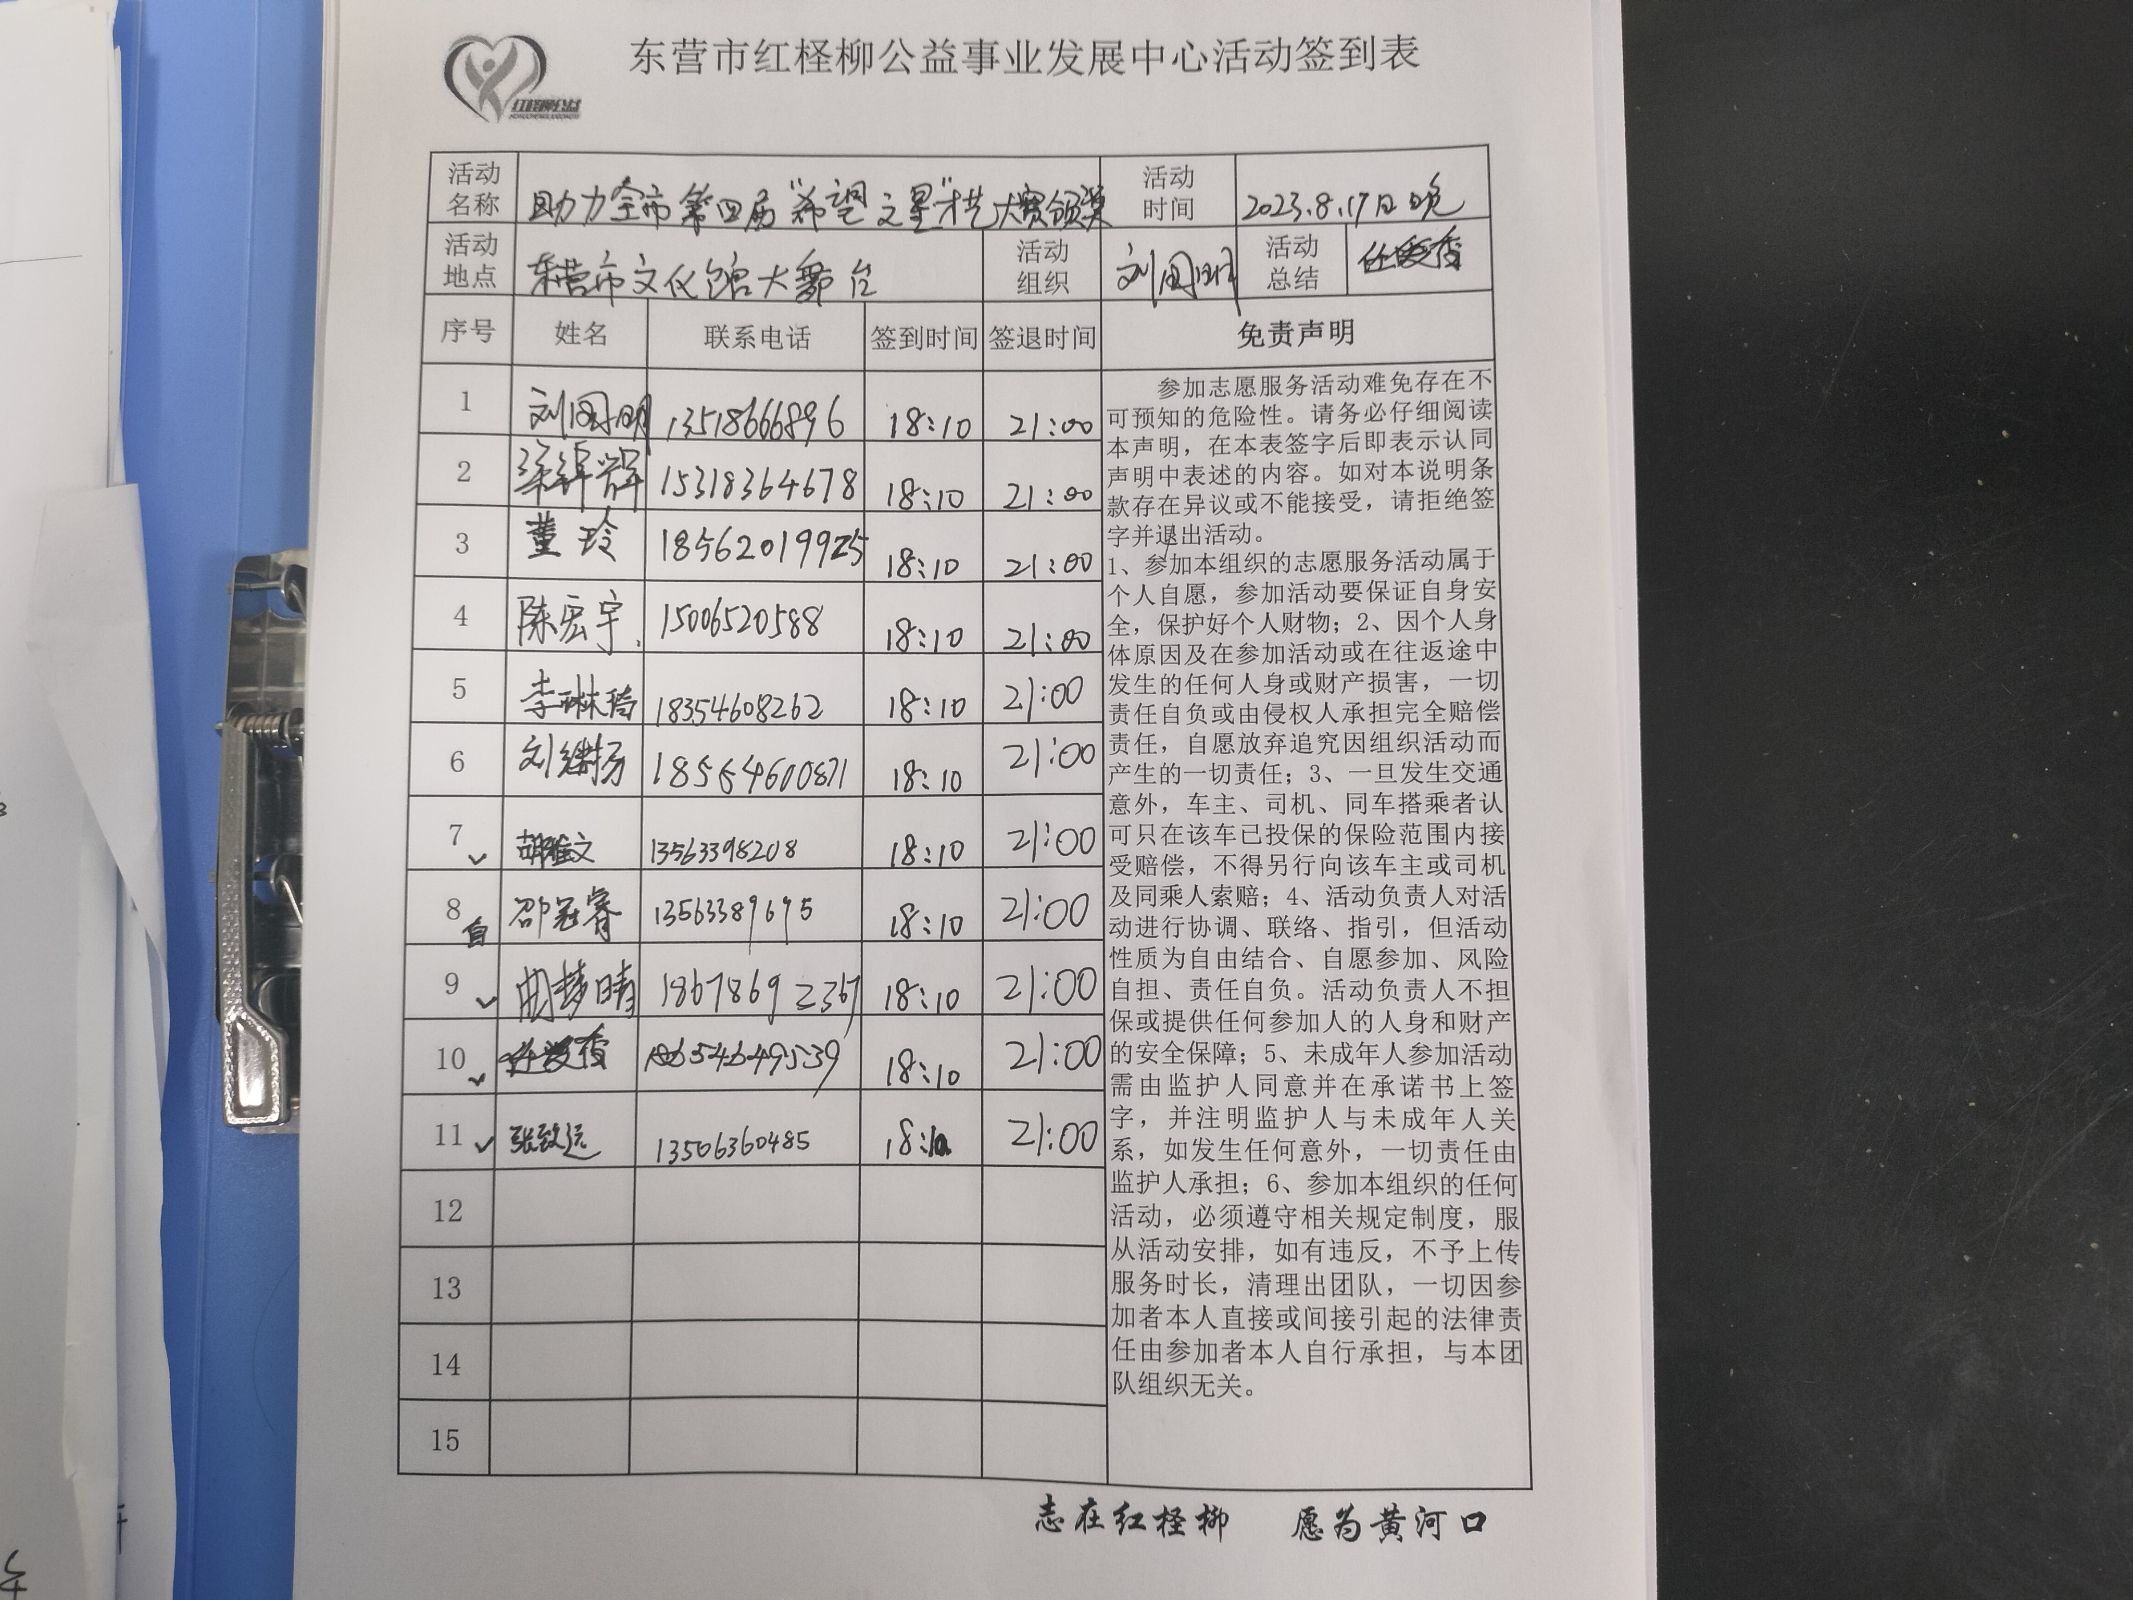 东营市红柽柳公益事业发展中心活动签到表
红柽柳公益
活动名称 助力全市第四届"希望之星"才艺大赛颁奖 活动时间 2023.8.17日晚
活动地点 东营市文化馆大舞台 活动组织 刘国明 活动总结
序号 姓名 联系电话 签到时间 签退时间 免责声明
1 刘国明 13518666896 18:10 21:00
2 15318364678 18:10 21:00
3 董玲 18562019925 18:10 21:00
4 陈宏宇 15006520588 18:10 21:00
5 李琳琦 18354608262 18:10 21:00
6 刘继扬 18564600871 18:10 21:00
7 胡雅文 13563398208 18:10 21:00
8 自 邵冠睿 13563389695 18:10 21:00
9 曲梦晴 18678692367 18:10 21:00
10 18:10 21:00
11 张致远 13506360485 18:10 21:00
12
13
14
15
参加志愿服务活动难免存在不
可预知的危险性。请务必仔细阅读
本声明，在本表签字后即表示认同
声明中表述的内容。如对本说明条
款存在异议或不能接受，请拒绝签
字并退出活动。
1、参加本组织的志愿服务活动属于
个人自愿，参加活动要保证自身安
全，保护好个人财物；2、因个人身
体原因及在参加活动或在往返途中
发生的任何人身或财产损害，一切
责任自负或由侵权人承担完全赔偿
责任，自愿放弃追究因组织活动而
产生的一切责任；3、一旦发生交通
意外，车主、司机、同车搭乘者认
可只在该车已投保的保险范围内接
受赔偿，不得另行向该车主或司机
及同乘人索赔；4、活动负责人对活
动进行协调、联络、指引，但活动
性质为自由结合、自愿参加、风险
自担、责任自负。活动负责人不担
保或提供任何参加人的人身和财产
的安全保障；5、未成年人参加活动
需由监护人同意并在承诺书上签
字，并注明监护人与未成年人关
系，如发生任何意外，一切责任由
监护人承担；6、参加本组织的任何
活动，必须遵守相关规定制度，服
从活动安排，如有违反，不予上传
服务时长，清理出团队，一切因参
加者本人直接或间接引起的法律责
任由参加者本人自行承担，与本团
队组织无关。
志在红柽柳 愿为黄河口